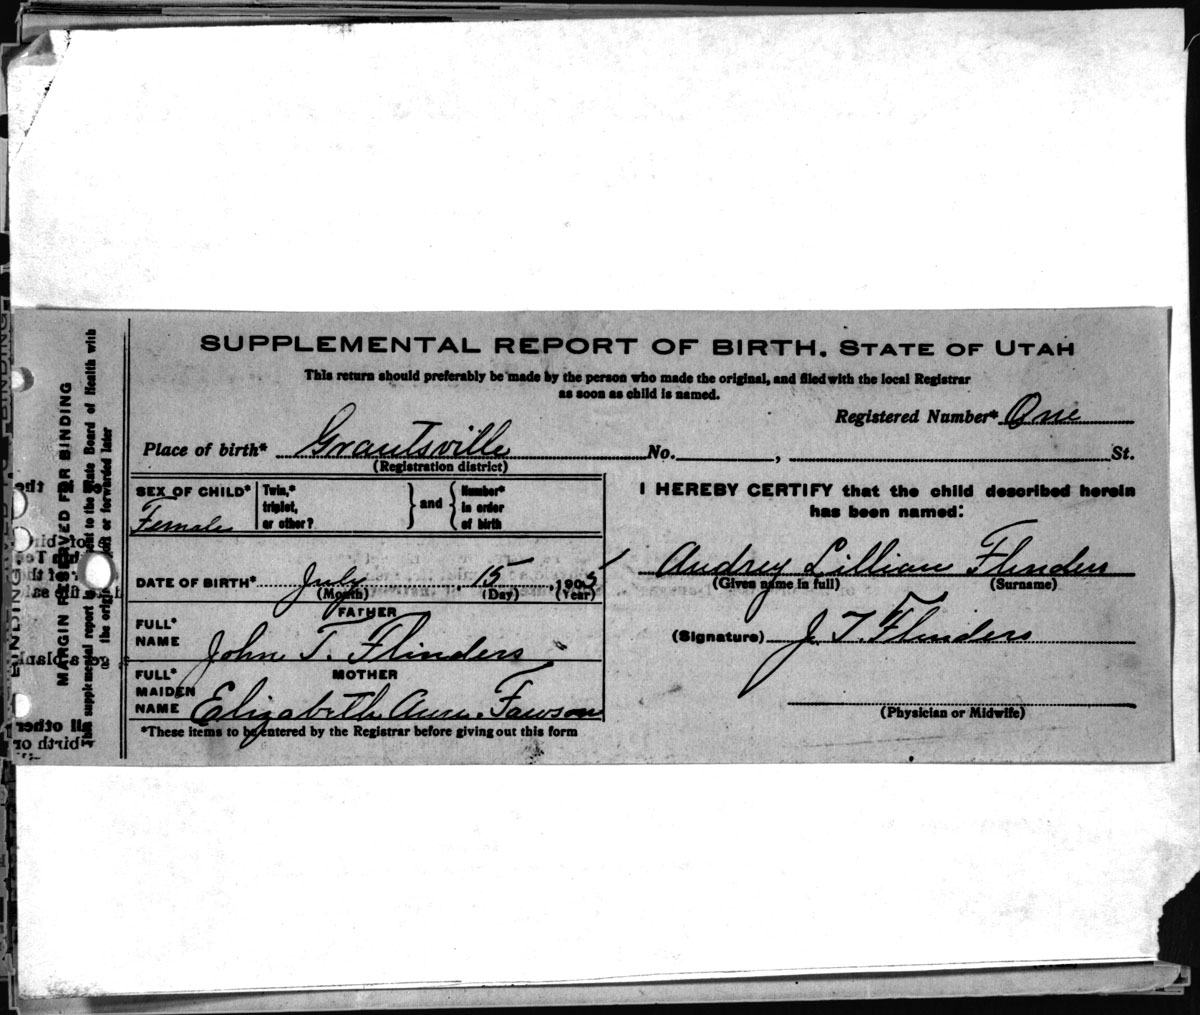 SUPPLEMENTAL REPORT OF BIRTH. STATE OF UTAH
This return should preferably be made by the person who made the original, and filed with the local Registrar
as soon as child is named.
Registered Number* One
Place of birth* Grantsville No. , St.
(Registration district)
SEX OF CHILD* Female
Twin,*
triplet,
or other?
and
Number*
in order
of birth
DATE OF BIRTH* July 15, 1905
(Month) (Day) (Year)
FATHER
FULL*
NAME
John T. Flinders
MOTHER
FULL*
MAIDEN
NAME
Elizabeth Ann. Fawson
*These items to be entered by the Registrar before giving out this form
I HEREBY CERTIFY that the child described herein
has been named:
Audrey Lillian Flinders
(Given name in full) (Surname)
(Signature) J. T. Flinders
(Physician or Midwife)
MARGIN RESERVED FOR BINDING